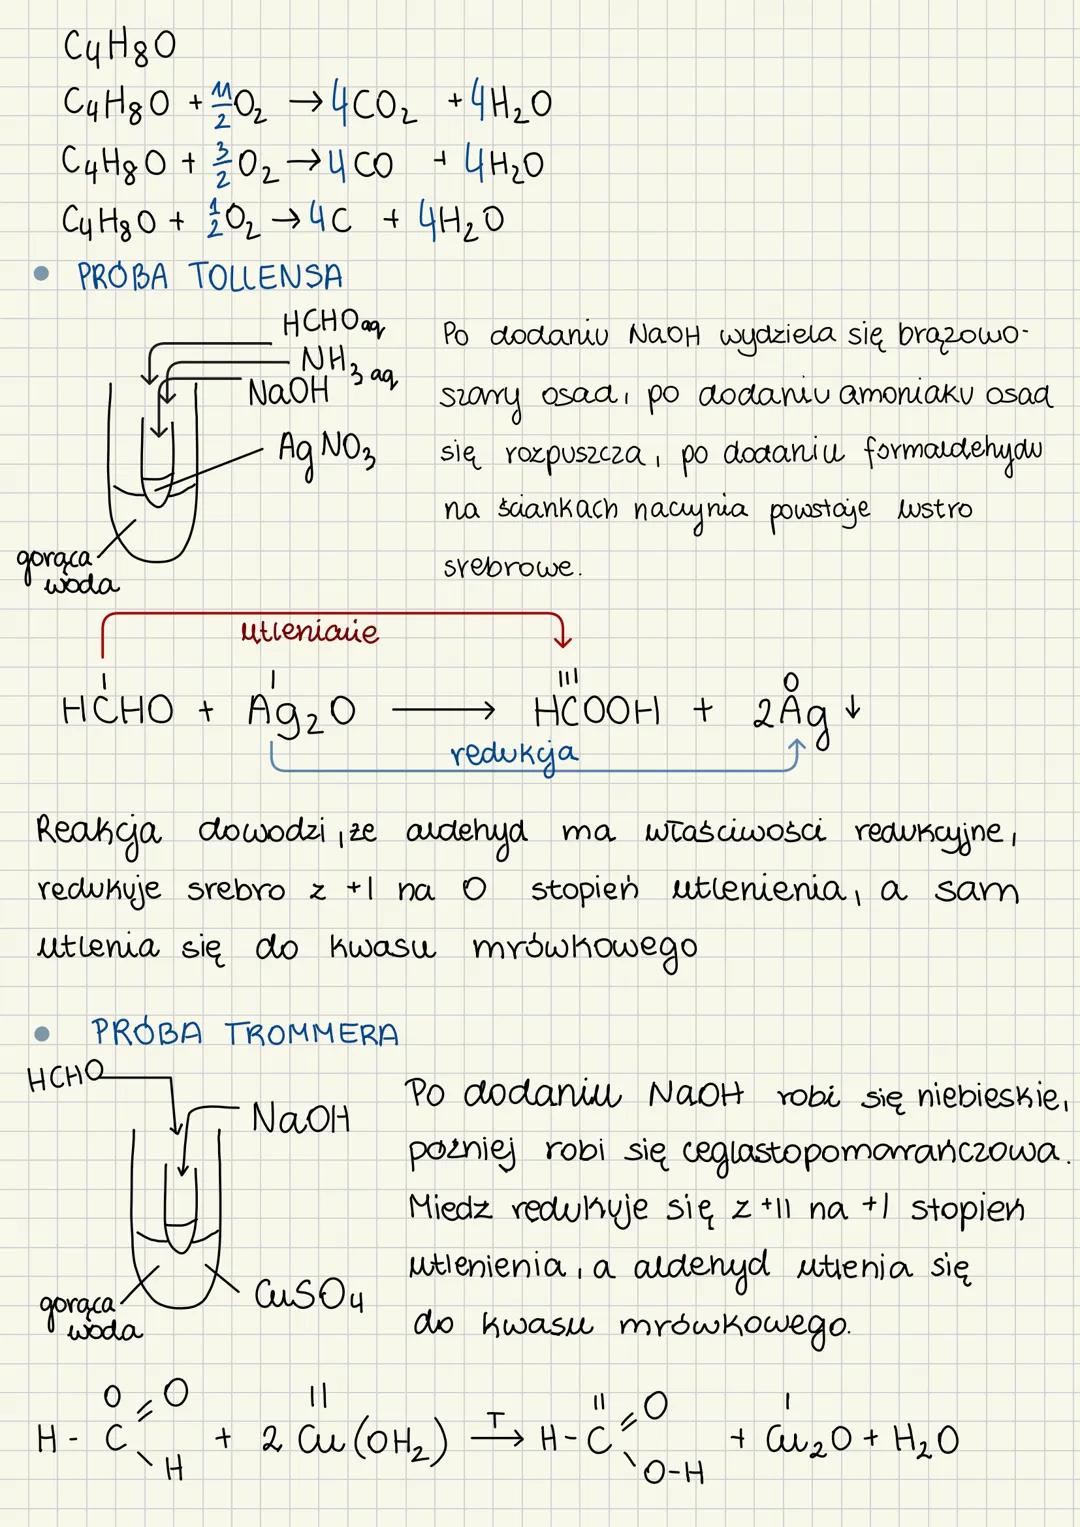 C₄H₈O
C₄H₈O + 11/2 O₂ → 4CO₂ + 4H₂O
C₄H₈O + 3/2 O₂ → 4CO + 4H₂O
C₄H₈O + 1/2 O₂ → 4C + 4H₂O
• PRÓBA TOLLENSA
HCHO aq
NH₃ aq
NaOH
AgNO₃
gorąca
woda
Po dodaniu NaOH wydziela się brązowo-
szary osad, po dodaniu amoniaku osad
się rozpuszcza, po dodaniu formaldehydu
na ściankach naczynia powstaje lustro
srebrowe.
utlenianie
I I III O
HCHO + Ag₂O → HCOOH + 2Ag ↓
redukcja
Reakcja dowodzi, że aldehyd ma właściwości redukcyjne,
redukuje srebro z +I na 0 stopień utlenienia, a sam
utlenia się do kwasu mrówkowego
• PRÓBA TROMMERA
HCHO
NaOH
CuSO₄
gorąca
woda
Po dodaniu NaOH robi się niebieskie,
poźniej robi się ceglastopomarańczowa.
Miedz redukuje się z +II na +I stopień
utlenienia, a aldehyd utlenia się
do kwasu mrówkowego.
O O II II O I
H - C + 2 Cu(OH₂) T → H - C + Cu₂O + H₂O
H O-H